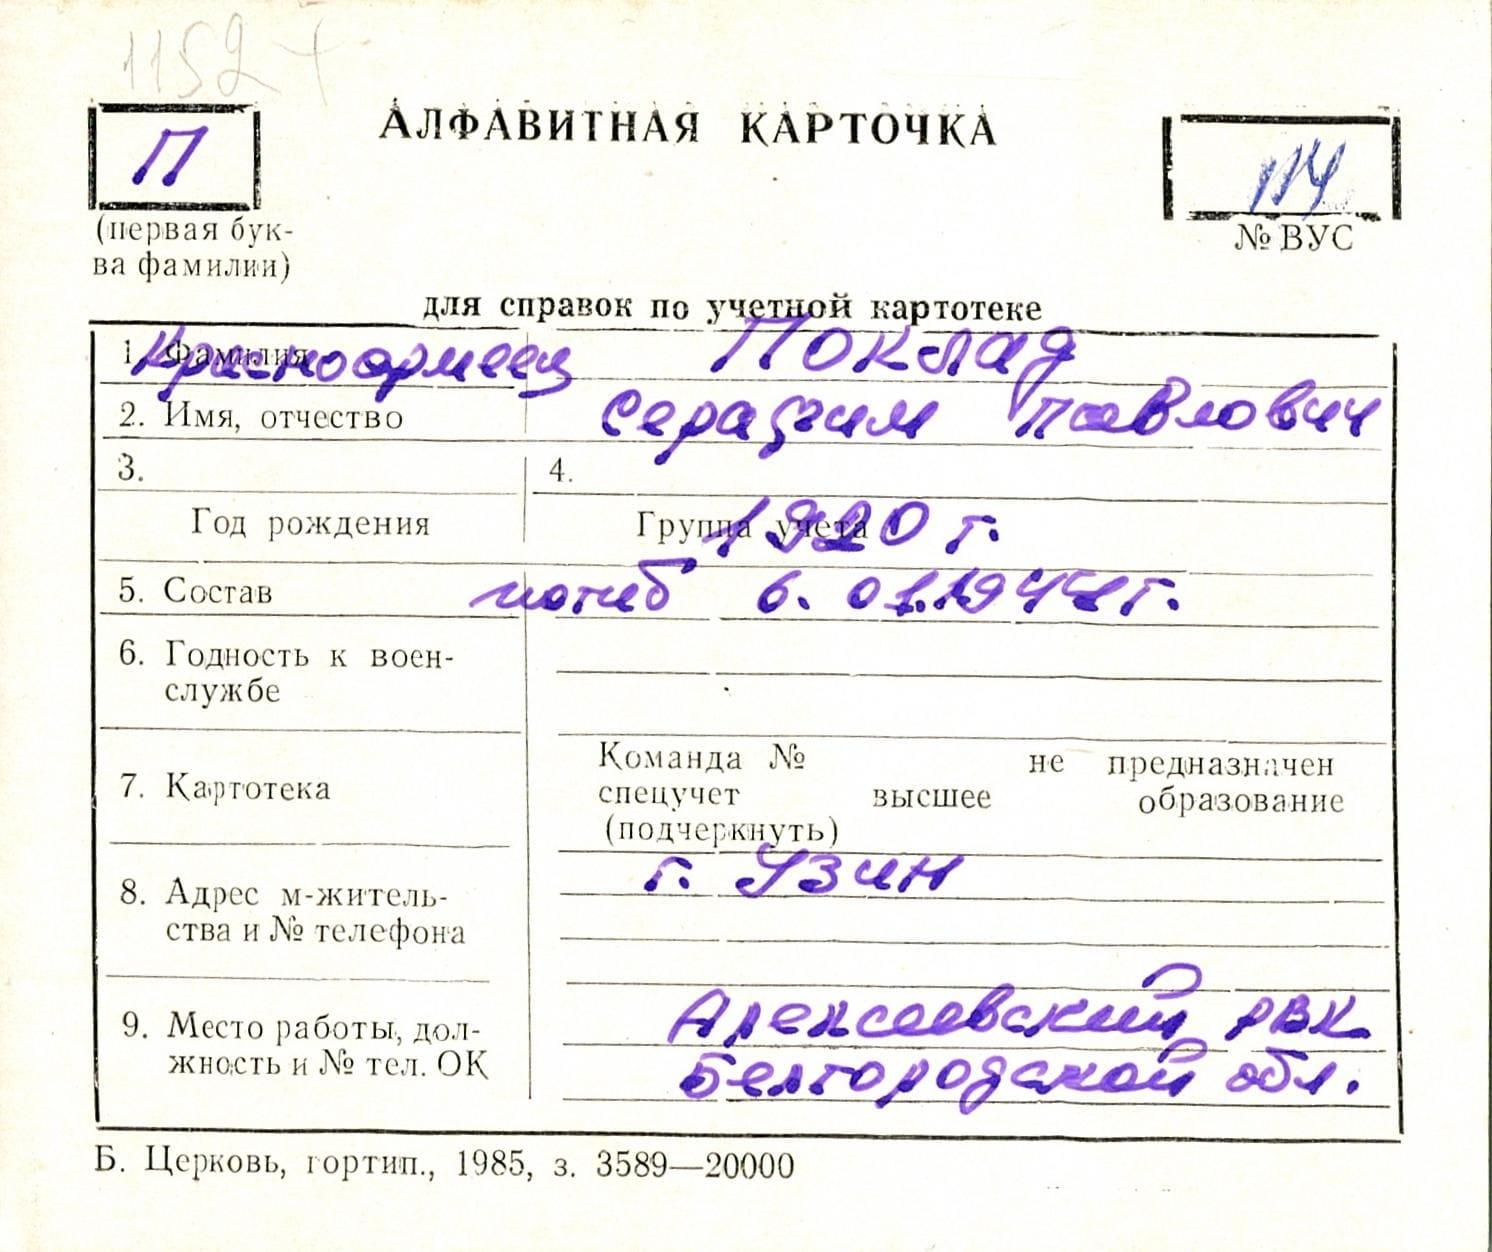 1152 +
П
АЛФАВИТНАЯ КАРТОЧКА
114
(первая бук-
ва фамилии)
№ ВУС
для справок по учетной картотеке
1. Фамилия
Красноармеец Поклад
2. Имя, отчество Серафим Павлович
3. 4.
Год рождения Группа учета 1920 г.
5. Состав погиб 6.01.1944г.
6. Годность к воен-
службе
7. Картотека
Команда № не предназначен
спецучет высшее образование
(подчеркнуть)
8. Адрес м-житель-
ства и № телефона
г. Узин
9. Место работы, дол-
жность и № тел. ОК
Алексеевский РВК
Белгородской обл.
Б. Церковь, гортип., 1985, з. 3589—20000